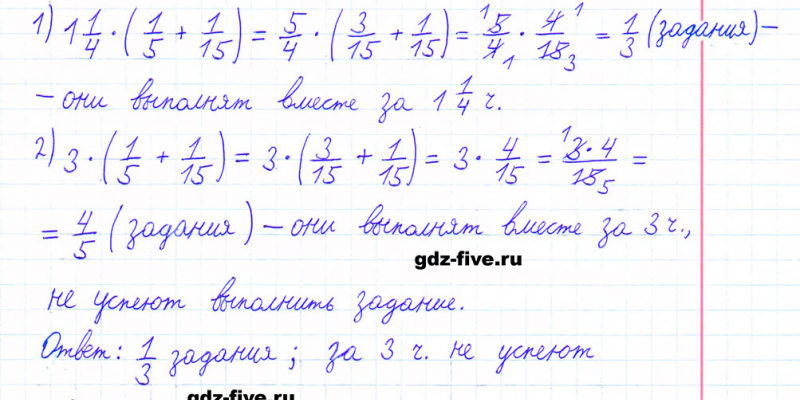 1) 1 1/4 · (1/5 + 1/15) = 5/4 · (3/15 + 1/15) = 5/4 · 4/15 = 1/3 (задания) –
– они выполнят вместе за 1 1/4 ч.
2) 3 · (1/5 + 1/15) = 3 · (3/15 + 1/15) = 3 · 4/15 = 3·4/15 =
= 4/5 (задания) – они выполнят вместе за 3 ч.,
gdz-five.ru
не успеют выполнить задание.
Ответ: 1/3 задания ; за 3 ч. не успеют
gdz-five.ru